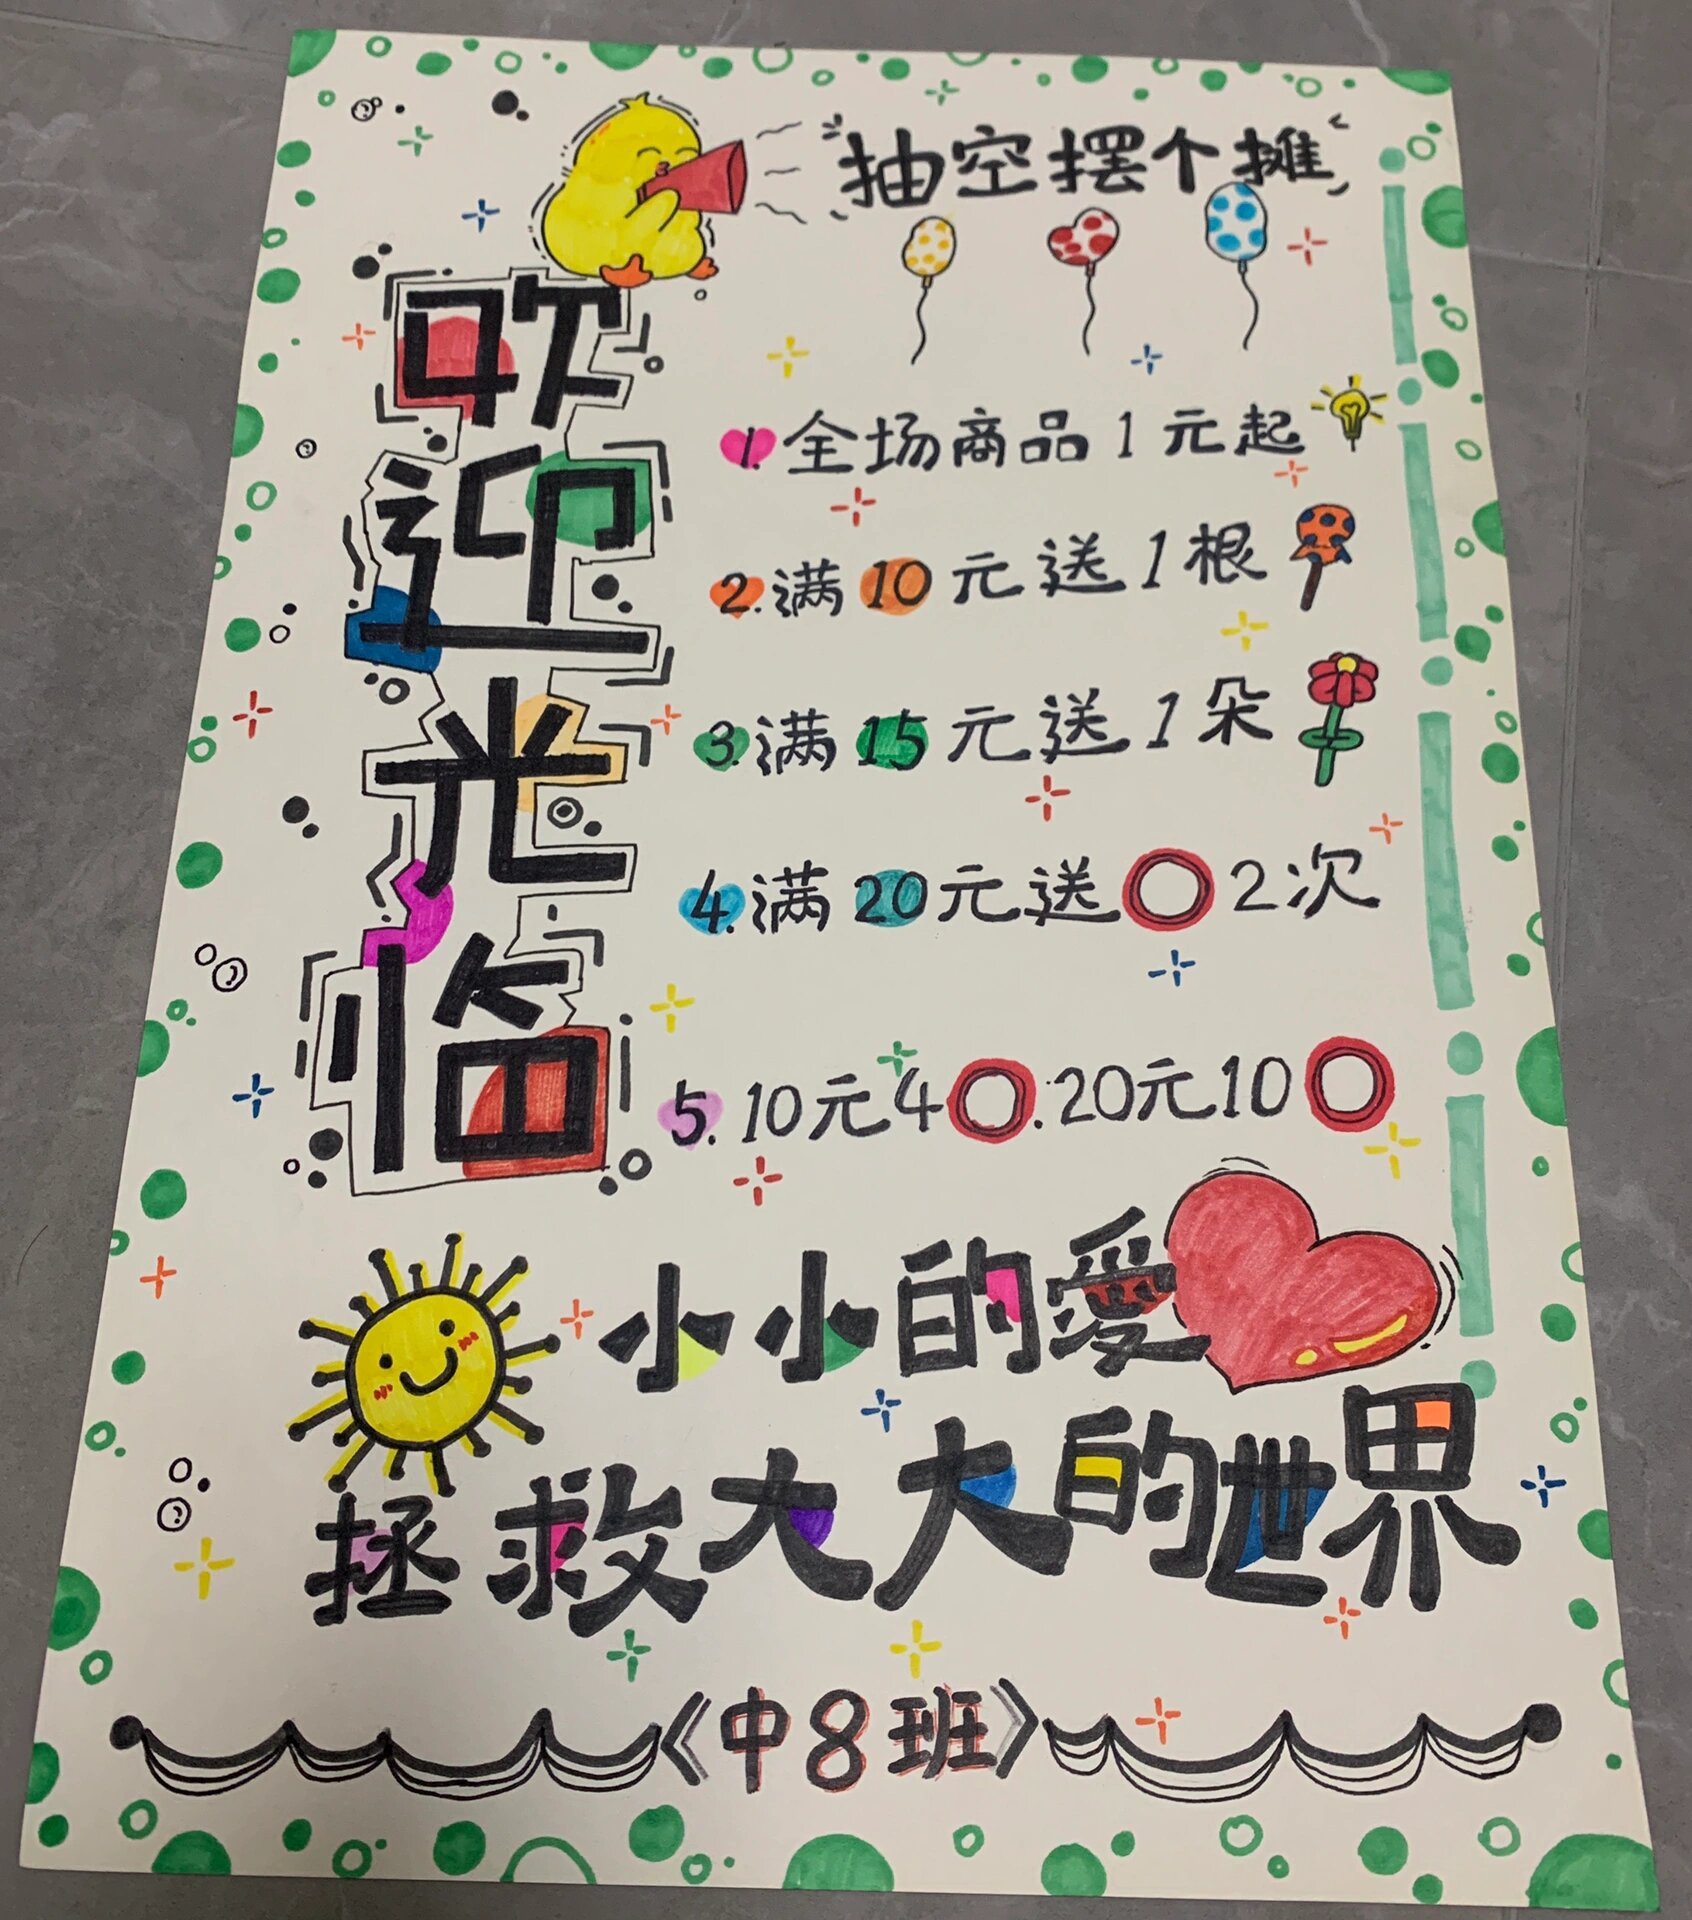 抽空摆个摊
欢迎光临
1.全场商品1元起
2.满10元送1根
3.满15元送1朵
4.满20元送 2次
5.10元4 .20元10
小小的爱
拯救大大的世界
《中8班》